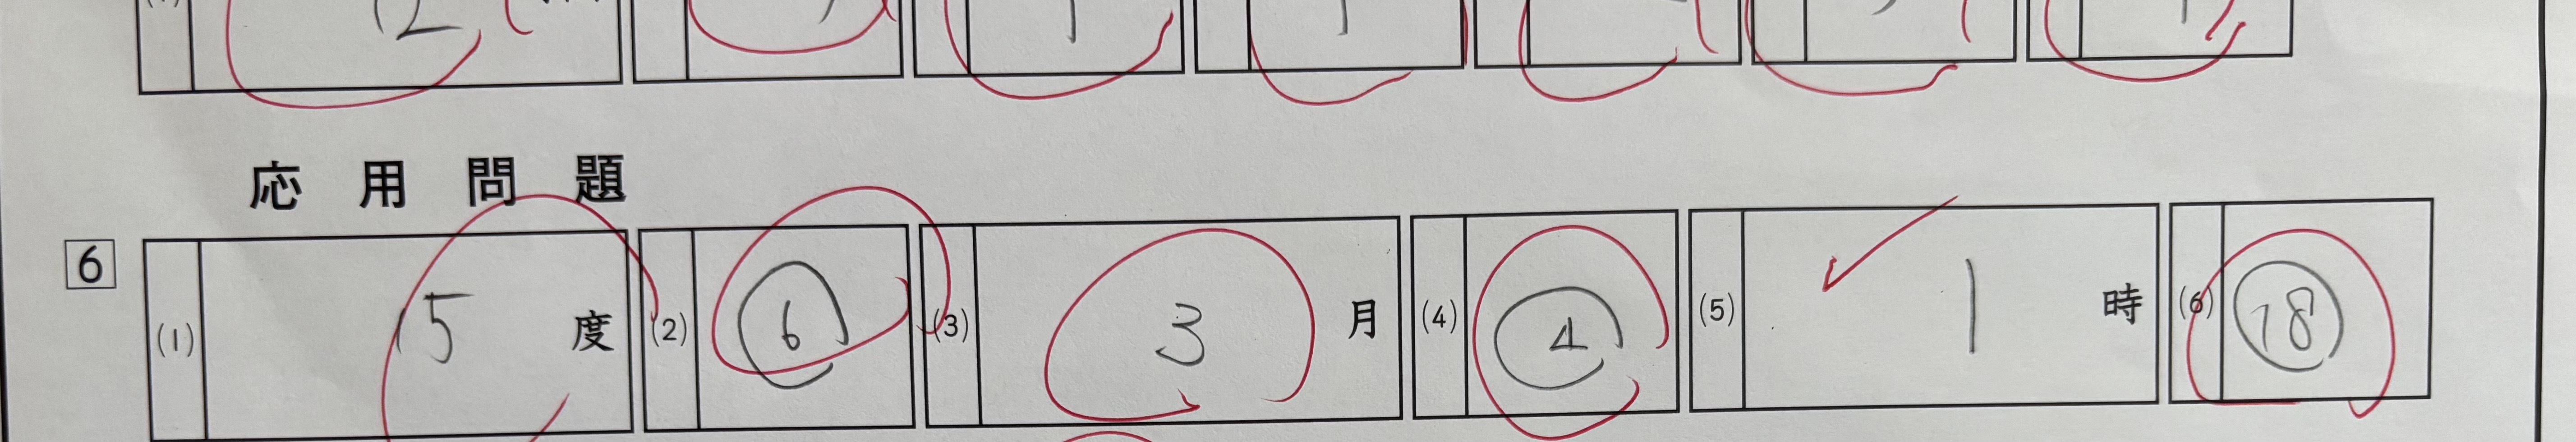 12
応用問題
6 (1) 15 度 (2) ⑥ (3) 3 月 (4) ④ (5) 1 時 (6) ⑱